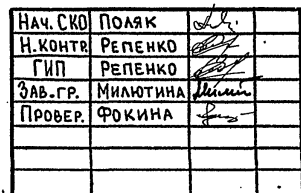 НАЧ. СКО ПОЛЯК
Н.КОНТР. РЕПЕНКО
ГИП РЕПЕНКО
ЗАВ.ГР. МИЛЮТИНА
ПРОВЕР. ФОКИНА